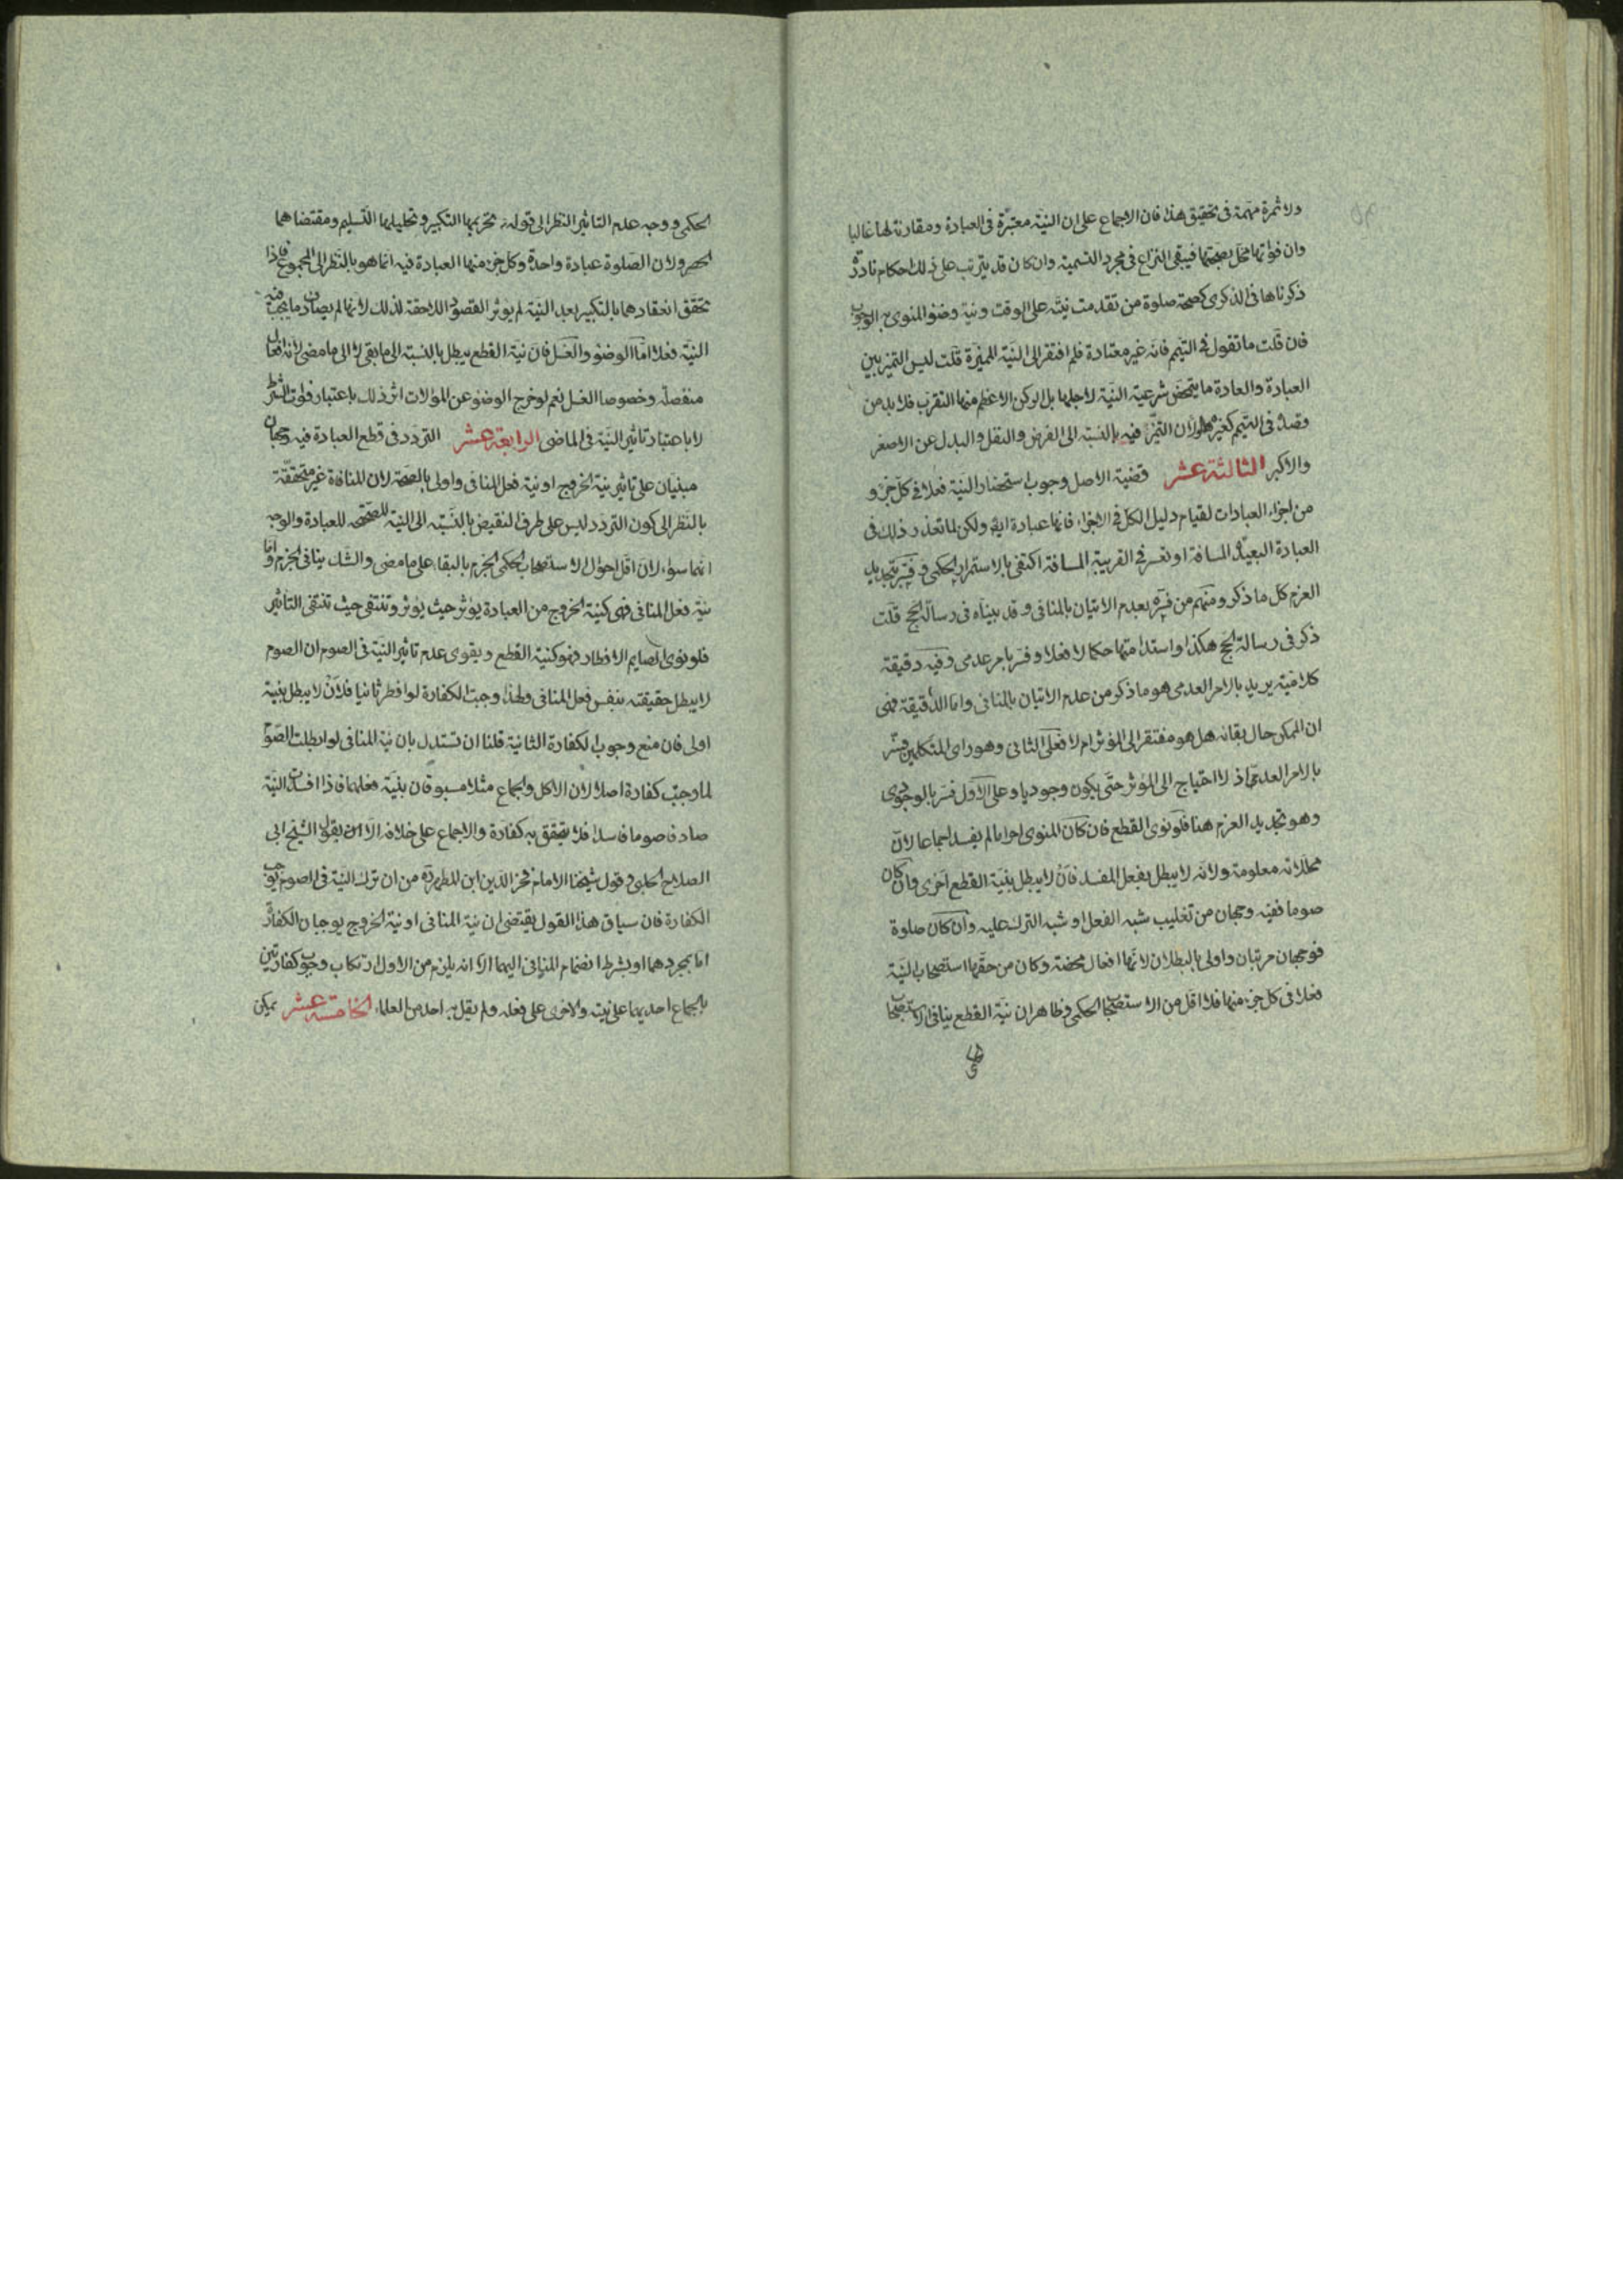 ولا ثمرة مهمة فى تحقيق هذا فان الاجماع على ان النيّة معتبرة فى العبادة ومقارنة لها غالبا
وان فواتها مخل بصحتها فيبقى النزاع فى مجرد التسمية وان كان قد يترتب على ذلك احكام نادرة
ذكرناها فى الذكرى كصحة صلوة من تقدمت نيته على الوقت ونية وضوء المنوى به الوجوب
فان قلت ما تقول فى التيمم فانه غير معتادة فلم افتقر الى النيّة المميزة قلت ليس التميز بين
العبادة والعادة ما يتمحض شرعية النيّة لاجلها بل الركن الاعظم منها التقرب فلا بد من
قصده فى التيمم كغيره ولان التميز فيه بالنسبة الى الفرض والنفل والبدل عن الاصغر
والاكبر الثالثة عشر قضية الاصل وجوب استحضار النية فعلا فى كل جزء
من اجزاء العبادات لقيام دليل الكل فى الاجزاء فانها عبادة ايضا ولكن لما تعذر ذلك فى
العبادة البعيدة المسافة او تعسر فى القريبة المسافة اكتفى بالاستمرار الحكمى وفسّر بتجديد
العزم كل ما ذكر ومنهم من فسّره بعدم الاتيان بالمنافى وقد بيناه فى رسالة الحج قلت
ذكر فى رسالة الحج هكذا واستدامتها حكما لا فعلا وفسر بامر عدمى وفيه دقيقة
كلامية يريد بالامر العدمى هو ما ذكر من عدم الاتيان بالمنافى واما الدقيقة فهى
ان الممكن حال بقائه هل هو مفتقر الى المؤثر ام لا فعلى الثانى وهو راى المتكلمين فسّر
بالامر العدمى اذ لا احتياج الى المؤثر حتى يكون وجوديا وعلى الاول فسر بالوجودى
وهو تجديد العزم هنا فلو نوى القطع فان كان المنوى احراما لم يفسد اجماعا لان
محللاته معلومة ولانه لا يبطل بفعل المفسد فلان لا يبطل بنية القطع احرى وان كان
صوما ففيه وجهان من تغليب شبه الفعل او شبه الترك عليه وان كان صلوة
فوجهان مرتبان واولى بالبطلان لانها افعال محضة وكان من حقها استصحاب النيّة
فعلا فى كل جزء منها فلا اقل من الاستصحاب الحكمى وظاهر ان نيّة القطع ينافى الاستصحاب
الحكمى ووجه عدم التاثير النظر الى قوله تحريمها التكبير وتحليلها التسليم ومقتضاهما
الحصر ولان الصلوة عبادة واحدة وكل جزء منها العبادة فيه انما هو بالنظر الى المجموع فاذا
تحقق انعقادها بالتكبير بعد النية لم يوثر القصود اللاحقة لذلك لانها لم يصادف ما يجب فيه
النيّة فعلا اما الوضوء والغسل فان نية القطع يبطل بالنسبة الى ما بقى لا الى ما مضى لانه افعال
منفصلة وخصوصا الغسل نعم لو خرج الوضوء عن الموالات اثر ذلك باعتبار فوات الشرط
لا باعتبار تاثير النيّة فى الماضى الرابعة عشر التردد فى قطع العبادة فيه وجهان
مبنيان على تاثير نية الخروج او نية فعل المنافى واولى بالصحة لان المنافاة غير متحققة
بالنظر الى كون التردد ليس على طرف النقيض بالنسبة الى النية المصححة للعبادة والوجه
انهما سواء لان اقل احوال الاستصحاب الحكمى الجزم بالبقاء على ما مضى والشك ينافى الجزم واما
نية فعل المنافى فهى كنية الخروج من العبادة يؤثر حيث يؤثر وتنتفى حيث تنتفى التأثير
فلو نوى الصايم الافطار فهو كنية القطع ويقوى عدم تاثير النيّة فى الصوم ان الصوم
لا يبطل حقيقته بنفس فعل المنافى ولهذا وجبت الكفارة لو افطر ثانيا فلان لا يبطل بنية
اولى فان منع وجوب الكفارة الثانية قلنا ان نستدل بان نية المنافى لو ابطلت الصوم
لما وجبت كفارة اصلا لان الاكل والجماع مثلا مسبوقان بنيّة فعلهما فاذا افسدت النيّة
صادف صوما فاسدا فلا يتحقق به كفارة والاجماع على خلافه الا ان يقول الشيخ ابى
الصلاح الحلبى وقول شيخنا الامام فخر الدين ابن المطهر ره من ان ترك النية فى الصوم يوجب
الكفارة فان سياق هذا القول يقتضى ان نية المنافى او نية الخروج يوجبان الكفارة
اما بمجردهما او بشرط انضمام المنافى اليهما الا انه يلزم من الاول ارتكاب وجوب كفارتين
بالجماع احديهما على نيته والاخرى على فعله ولم يقل به احد من العلماء الخامسة عشر يمكن